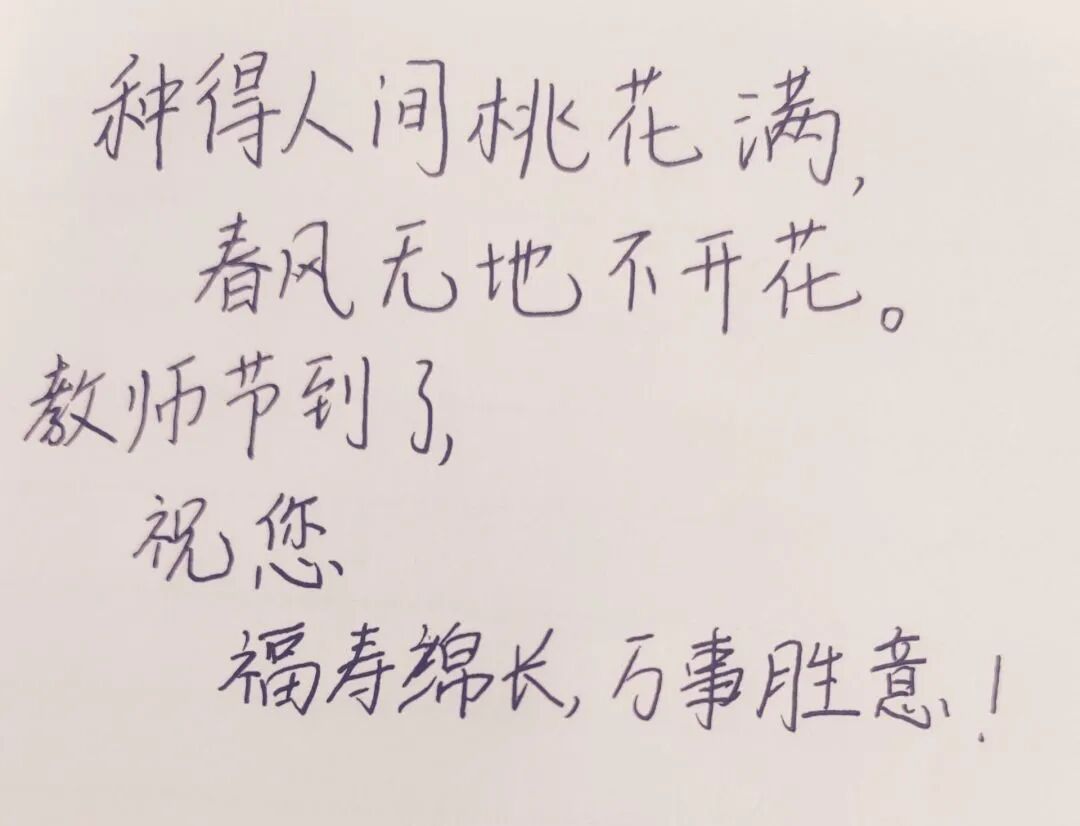 种得人间桃花满,
春风无地不开花。
教师节到了,
祝您
福寿绵长,万事胜意!